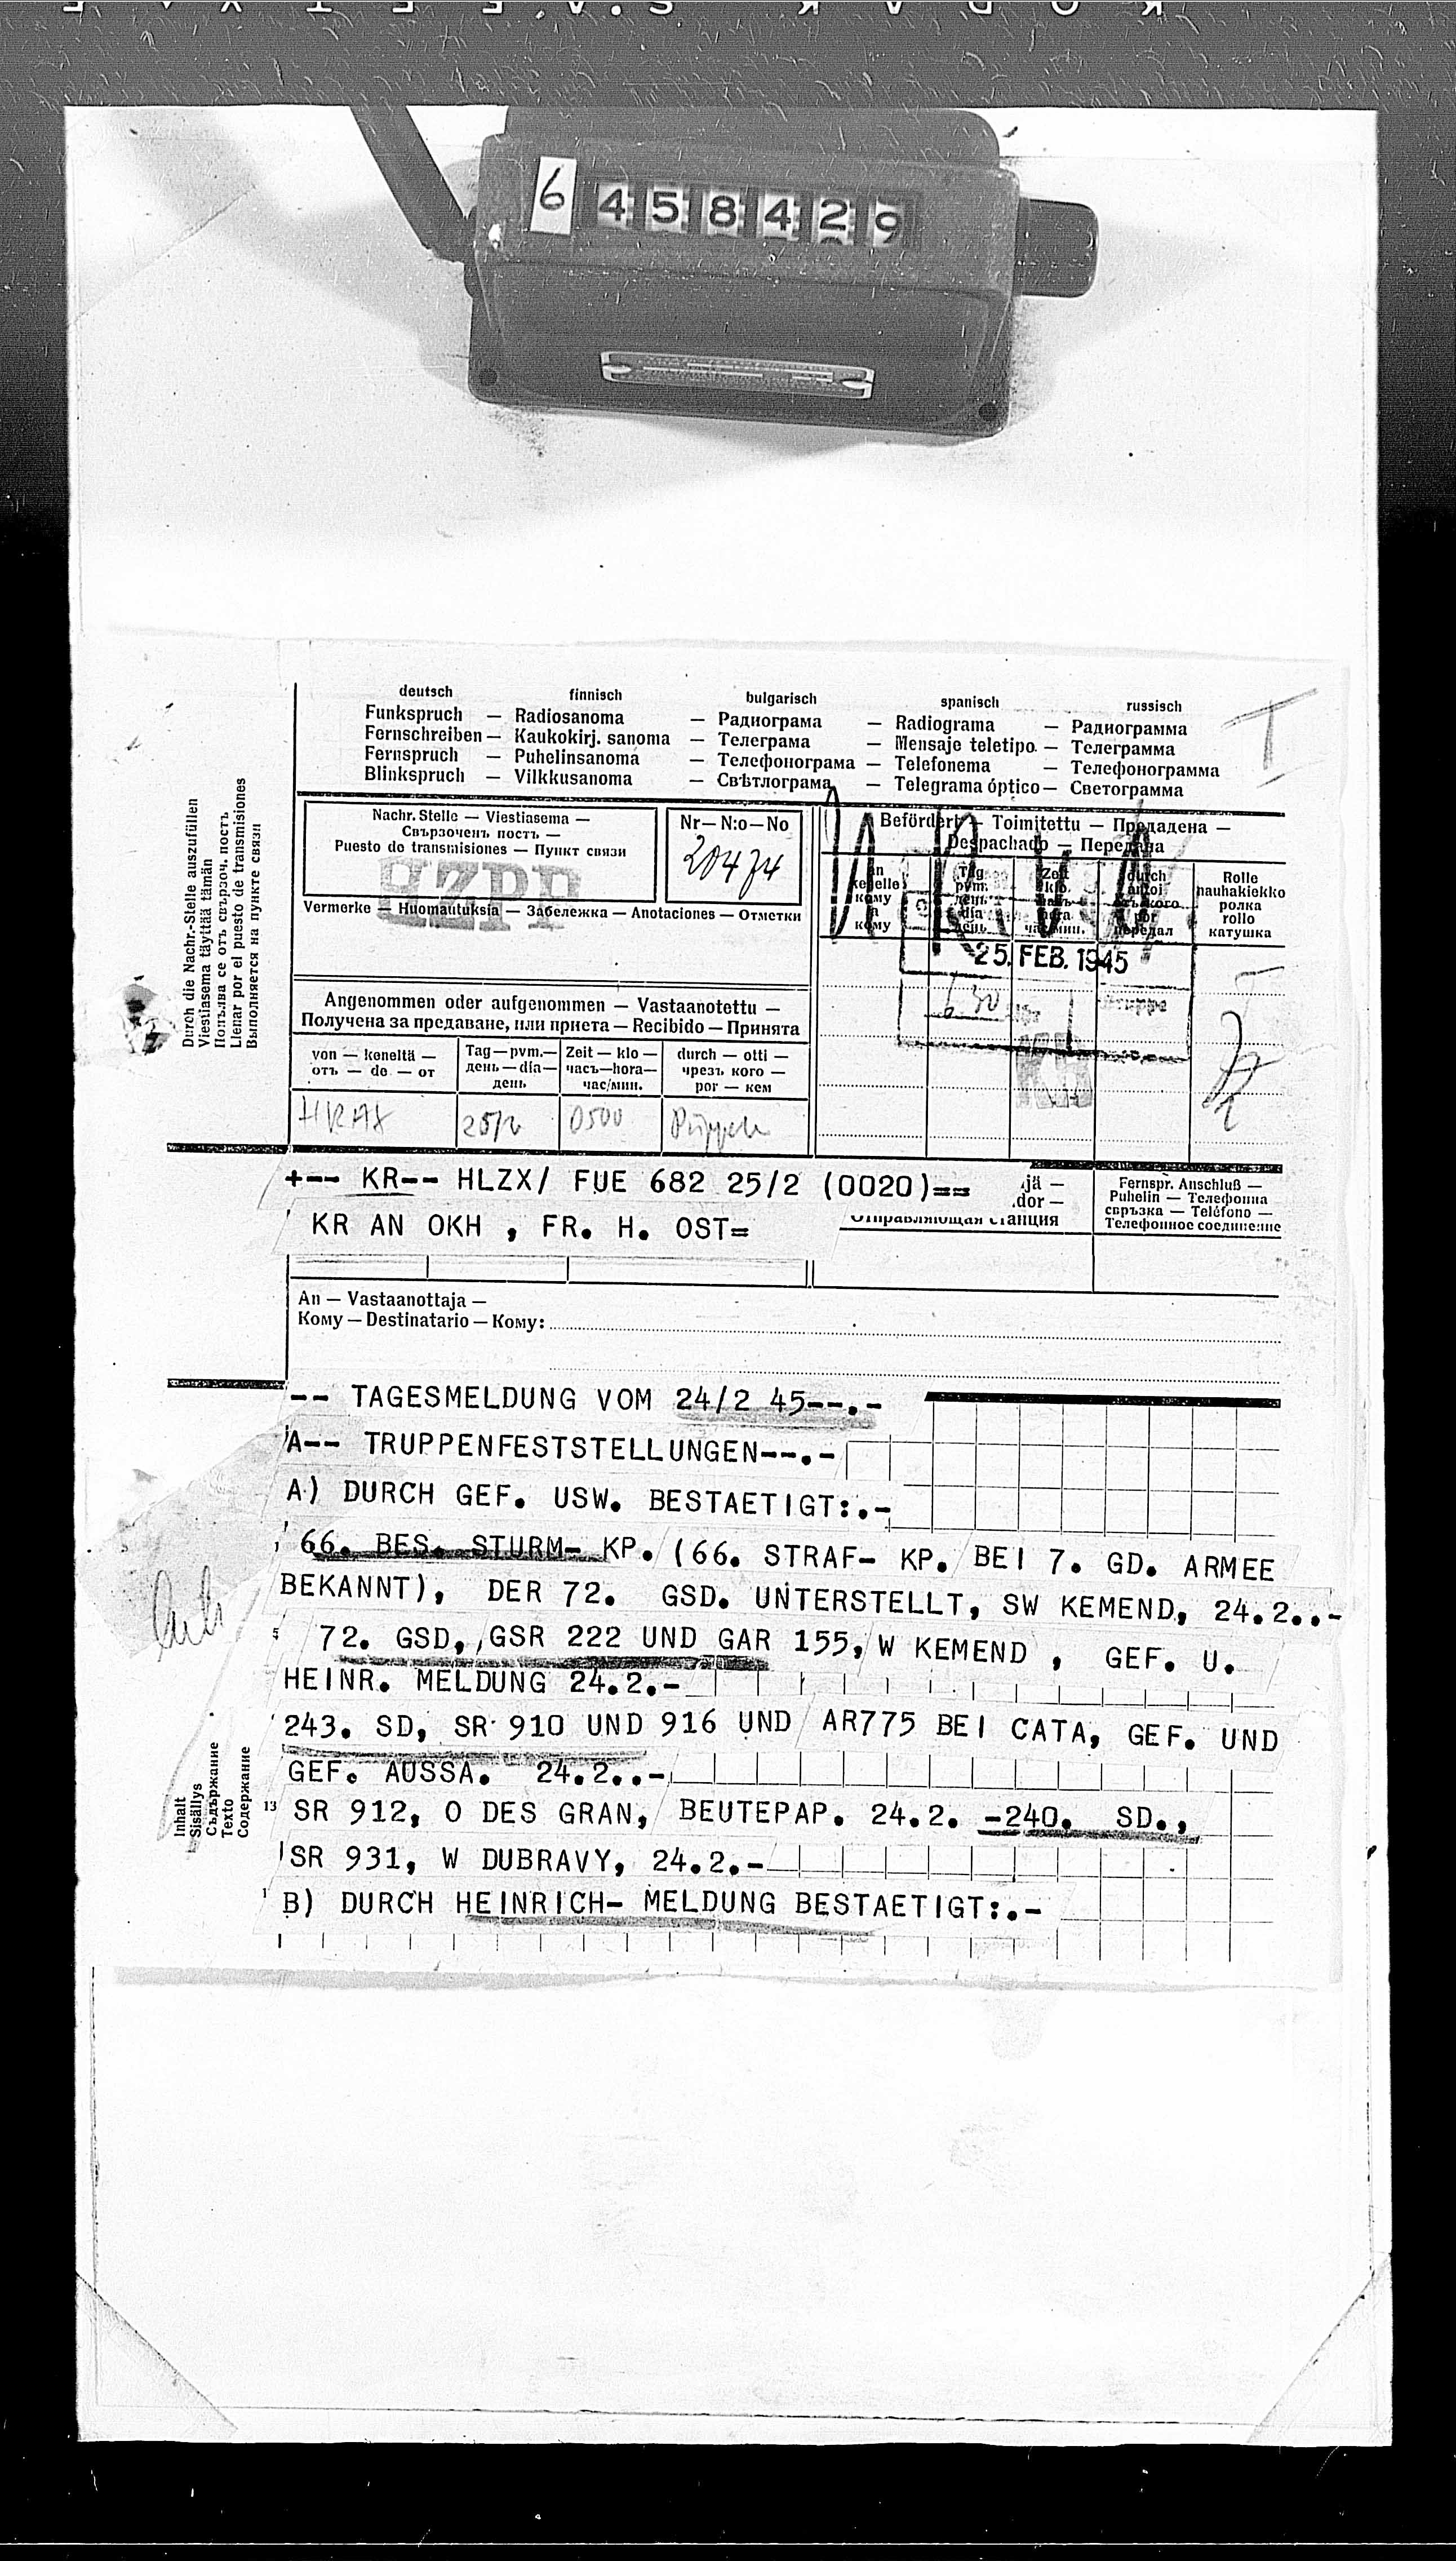 KODAK S.A.F.E.T.Y
6 458429
deutsch finnisch bulgarisch spanisch russisch
Funkspruch — Radiosanoma — Радиограма — Radiograma — Радиограмма
Fernschreiben — Kaukokirj. sanoma — Телеграма — Mensaje teletipo. — Телеграмма
Fernspruch — Puhelinsanoma — Телефонограма — Telefonema — Телефонограмма
Blinkspruch — Vilkkusanoma — Свѣтлограма — Telegrama óptico — Светограмма
T
Durch die Nachr.-Stelle auszufüllen
Viestiasema täyttää tämän
Попълва се отъ свързоч. постъ
Llenar por el puesto de transmisiones
Выполняется на пункте связи
Nachr. Stelle — Viestiasema —
Свързоченъ постъ —
Puesto do transmisiones — Пункт связи
HZPH
Nr — N:o — No
20474
Vermerke — Huomautuksia — Забележка — Anotaciones — Отметки
Befördert — Toimitettu — Предадена —
Despachado — Передана
an
кому
a
кому
Tag
pvm.
день
día
день
Zeit
klo.
час/мин.
durch
por
передал
Rolle
nauhakiekko
ролка
rollo
катушка
25. FEB. 1945
630
KR
Angenommen oder aufgenommen — Vastaanotettu —
Получена за предаване, или приета — Recibido — Принята
von — keneltä —
отъ — do — от
Tag — pvm. —
день — día —
день
Zeit — klo —
часъ — hora —
час/мин.
durch — otti —
чрезъ кого —
por — кем
HRAX 25/2 0500
+-- KR-- HLZX/ FUE 682 25/2 (0020)==
KR AN OKH , FR. H. OST=
jä —
dor —
Отправляющая станция
Fernspr. Anschluß —
Puhelin — Телефонна
свръзка — Teléfono —
Телефонное соединение
An — Vastaanottaja —
Кому — Destinatario — Кому:
-- TAGESMELDUNG VOM 24/2 45--.-
A-- TRUPPENFESTSTELLUNGEN--.-
A) DURCH GEF. USW. BESTAETIGT:.-
66. BES. STURM- KP. (66. STRAF- KP. BEI 7. GD. ARMEE
BEKANNT), DER 72. GSD. UNTERSTELLT, SW KEMEND, 24.2..-
72. GSD, GSR 222 UND GAR 155, W KEMEND , GEF. U.
HEINR. MELDUNG 24.2.-
243. SD, SR 910 UND 916 UND AR775 BEI CATA, GEF. UND
GEF. AUSSA. 24.2..-
13 SR 912, O DES GRAN, BEUTEPAP. 24.2. -240. SD.,
SR 931, W DUBRAVY, 24.2.-
B) DURCH HEINRICH- MELDUNG BESTAETIGT:.-
Inhalt
Sisällys
Съдържание
Texto
Содержание